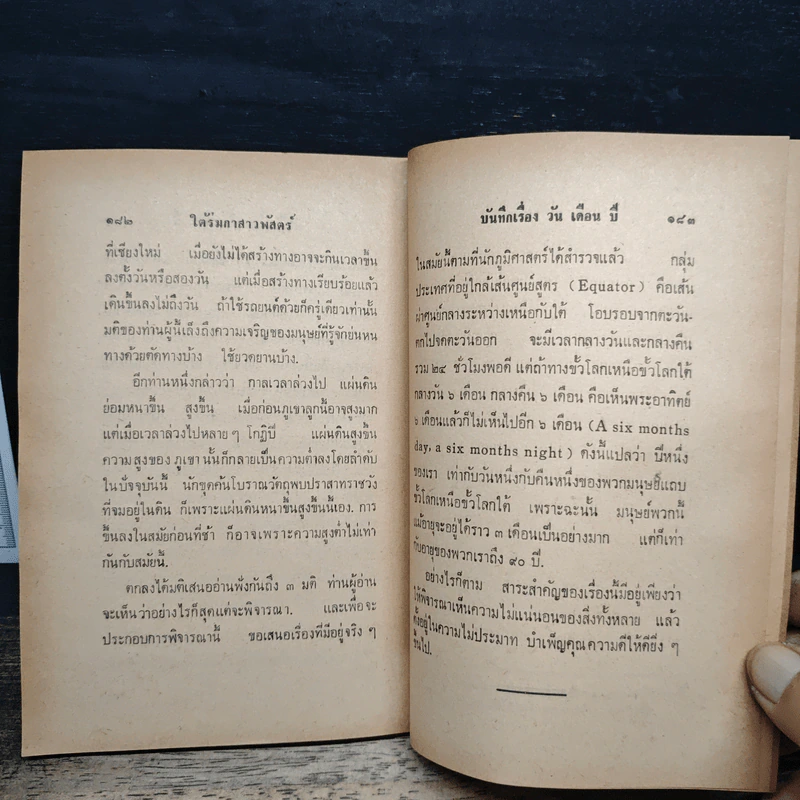 ๑๘๒ ใต้ร่มกาสาวพัสตร์
ที่เชียงใหม่ เมื่อยังไม่ได้สร้างทางอาจจะกินเวลาขึ้น
ลงตั้งวันหรือสองวัน แต่เมื่อสร้างทางเรียบร้อยแล้ว
เดินขึ้นลงไม่ถึงวัน ถ้าใช้รถยนต์ด้วยก็ครู่เดียวเท่านั้น
มติของท่านผู้นี้เล็งถึงความเจริญของมนุษย์ที่รู้จักย่นหน
ทางด้วยตัดทางบ้าง ใช้ยวดยานบ้าง.
อีกท่านหนึ่งกล่าวว่า กาลเวลาล่วงไป แผ่นดิน
ย่อมหนาขึ้น สูงขึ้น เมื่อก่อนภูเขาลูกนี้อาจสูงมาก
แต่เมื่อเวลาล่วงไปหลายๆ โกฏิปี แผ่นดินสูงขึ้น
ความสูงของ ภูเขา นั้น ก็กลายเป็นความต่ำลงโดยลำดับ
ในปัจจุบันนี้ นักขุดค้นโบราณวัตถุพบปราสาทราชวัง
ที่จมอยู่ในดิน ก็เพราะแผ่นดินหนาขึ้นสูงขึ้นนี้เอง. การ
ขึ้นลงในสมัยก่อนที่ช้า ก็อาจเพราะความสูงต่ำไม่เท่า
กันกับสมัยนี้.
ตกลงได้มติเสนออ่านฟังกันถึง ๓ มติ ท่านผู้อ่าน
จะเห็นว่าอย่างไรก็สุดแต่จะพิจารณา. และเพื่อจะ
ประกอบการพิจารณานี้ ขอเสนอเรื่องที่มีอยู่จริง ๆ
บันทึกเรื่อง วัน เดือน ปี ๑๘๓
ในสมัยนี้ตามที่นักภูมิศาสตร์ได้สำรวจแล้ว กลุ่ม
ประเทศที่อยู่ใกล้เส้นศูนย์สูตร (Equator) คือเส้น
ผ่าศูนย์กลางระหว่างเหนือกับใต้ โอบรอบจากตะวัน-
ตกไปจดตะวันออก จะมีเวลากลางวันและกลางคืน
รวม ๒๔ ชั่วโมงพอดี แต่ถ้าทางขั้วโลกเหนือขั้วโลกใต้
กลางวัน ๖ เดือน กลางคืน ๖ เดือน คือเห็นพระอาทิตย์
๖ เดือนแล้วก็ไม่เห็นไปอีก ๖ เดือน (A six months
day, a six months night) ดังนี้แปลว่า ปีหนึ่ง
ของเรา เท่ากับวันหนึ่งกับคืนหนึ่งของพวกมนุษย์แถบ
ขั้วโลกเหนือขั้วโลกใต้ เพราะฉะนั้น มนุษย์พวกนี้
แม้อายุจะอยู่ได้ราว ๓ เดือนเป็นอย่างมาก แต่ก็เท่า
กับอายุของพวกเราถึง ๙๐ ปี.
อย่างไรก็ตาม สาระสำคัญของเรื่องนี้มีอยู่เพียงว่า
ให้พิจารณาเห็นความไม่แน่นอนของสิ่งทั้งหลาย แล้ว
ตั้งอยู่ในความไม่ประมาท บำเพ็ญคุณความดีให้ดียิ่ง ๆ
ขึ้นไป.